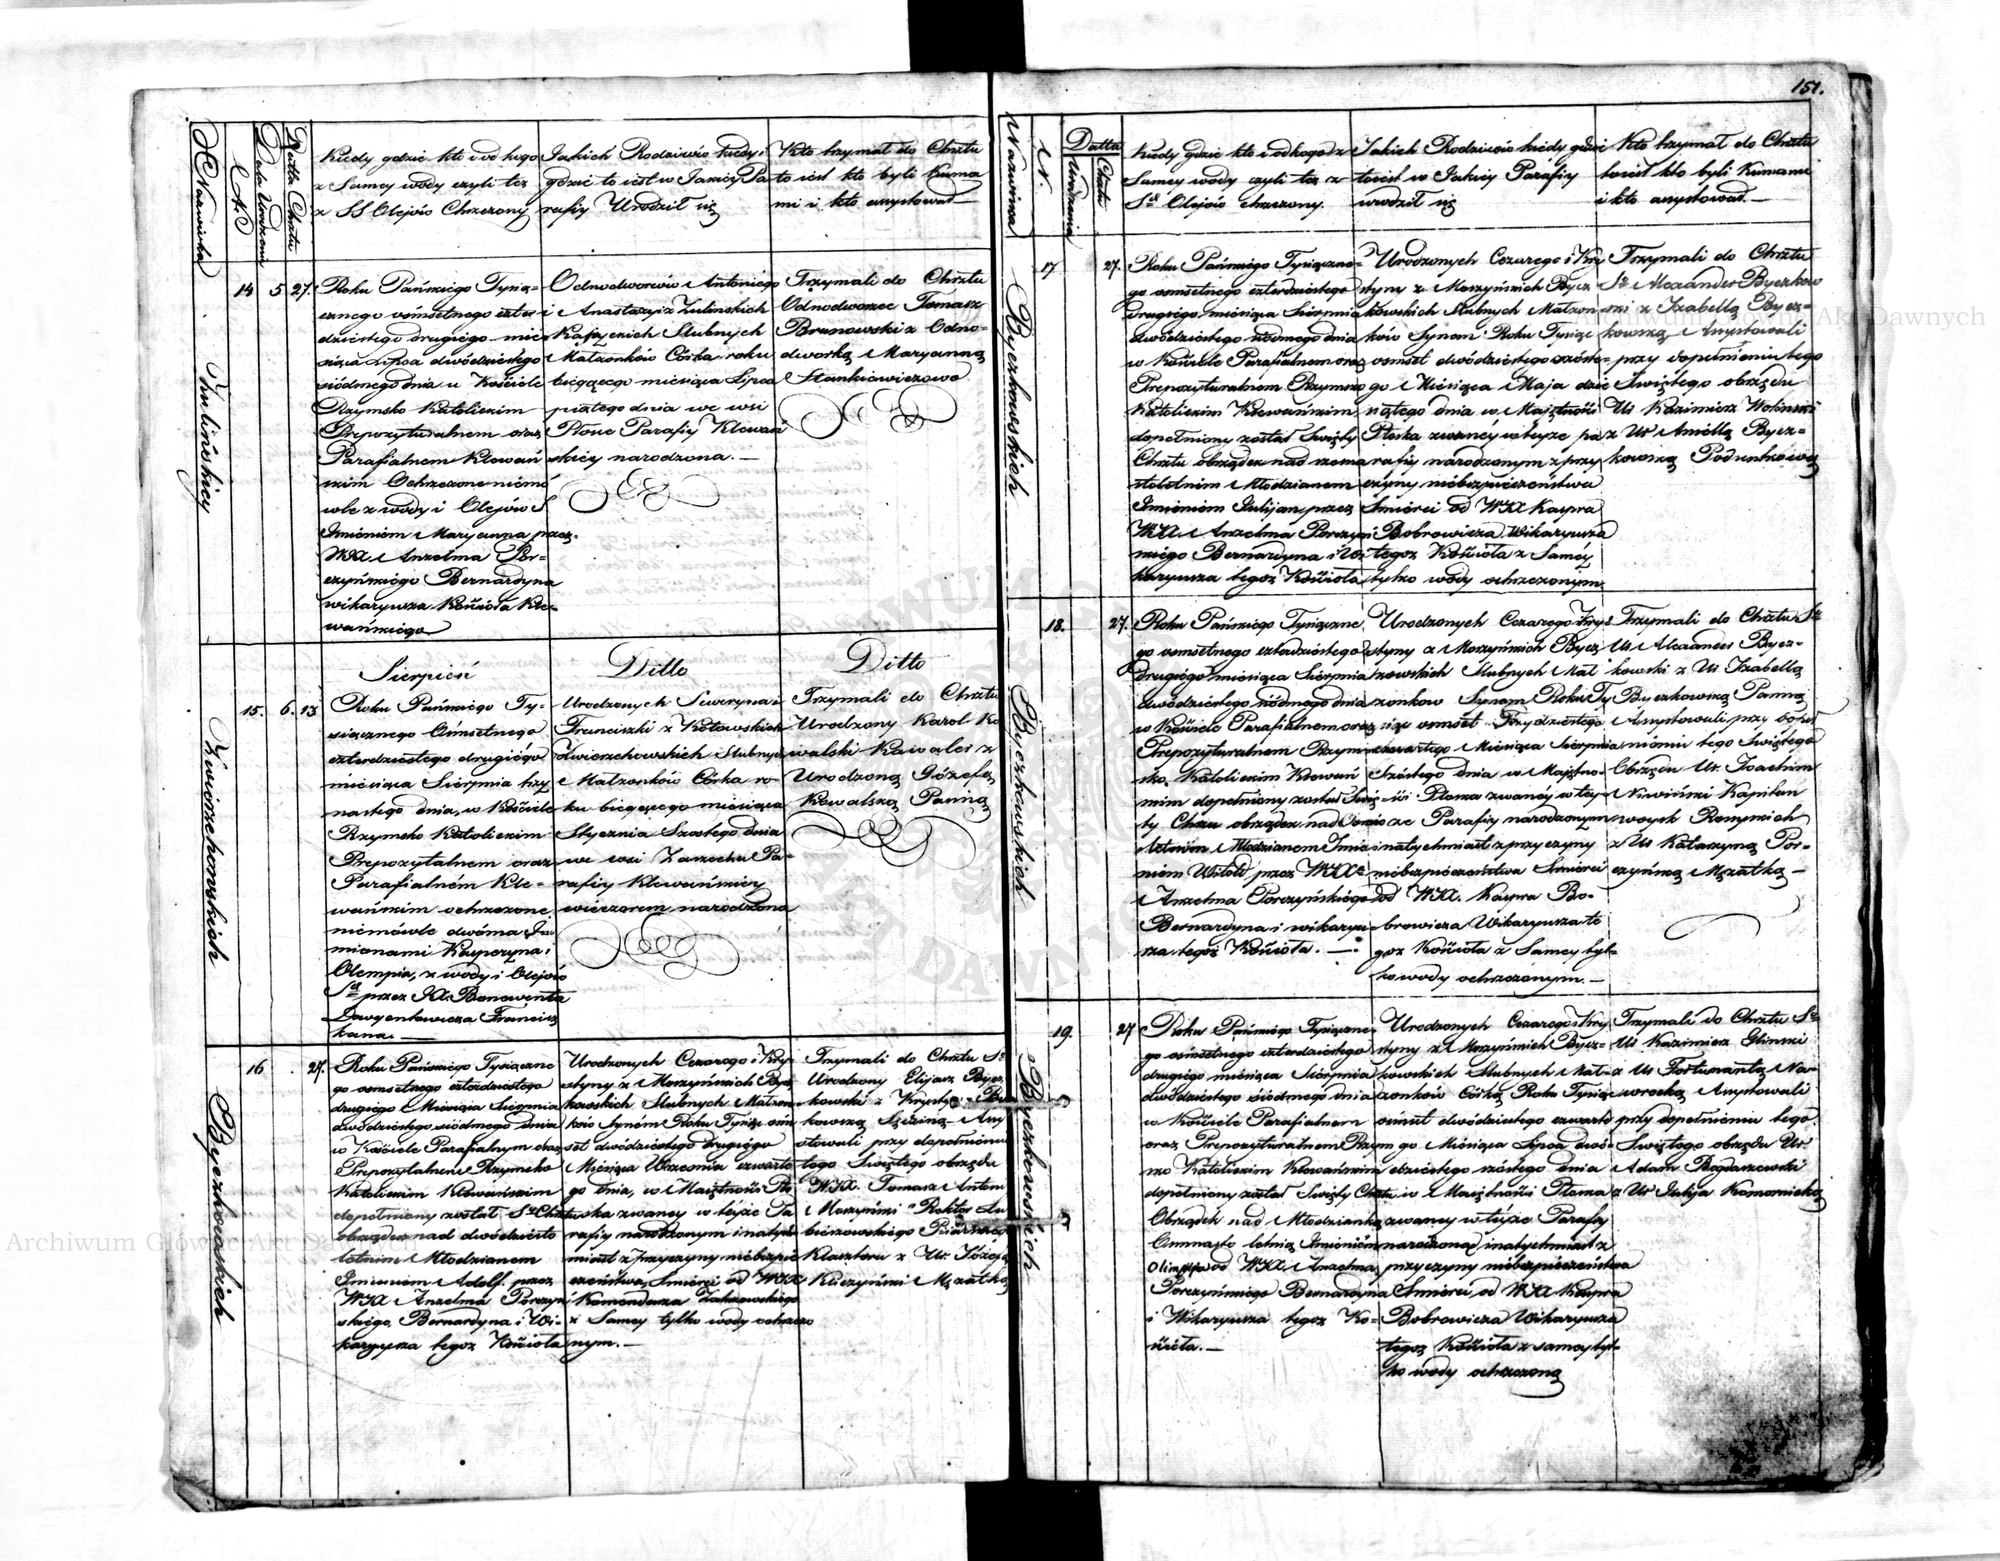 Nazwiska
No
Data Urodzenia
Datta Chrztu
Kiedy gdzie kto i od kogo
z Samey wody czyli tez
z SS Olejów Chrzczony
Jakich Rodziców kiedy,
gdzie to iest w Jakiey Pa
rafiy Urodził się
Kto trzymał do Chrztu
to iest kto byli Kuma
mi i kto assystował
14 5 27.
Roku Pańskiego Tysią-
cznego osmsetnego czter
dziestego drugiego mie
siąca Lipca dwódziestego
siódmego dnia w Kościele
Rzymsko Katolickim
Prepozyturalnem oraz
Parafialnem Klewań
skim Ochrzczone niemo
wle z wody i Olejów S
Imieniem Maryanna przez
WJX Anzelma Por-
czyńskiego Bernardyna
wikaryusza Kościoła Kle-
wańskiego
Odnodworców Antoniego
i Anastazyi z Zulinskich
Stubnych
Małżonków Córka roku
bieżącego miesiąca Lipca
piątego dnia we wsi
Parafiy Klewań
skiey narodzona. —
Trzymali do Chrztu
Odnodworzec Tomasz
Brunowski z Odno-
dworką Maryanną
Stankiewiczowa
Sierpień
Ditto
Ditto
15. 6. 13
Zwierzchowskich
Roku Pańskiego Ty-
siącznego Ośmsetnego
czterdziestego drugiego
miesiąca Sierpnia trzy
nastego dnia, w Kościele
Rzymsko Katolickim
Prepozytalnem oraz
Parafialném Kle-
wańskim ochrzczone
niemówle dwóma I-
mionami Kasperyna i
Olempia, z wody i Olejów
Sch przez JX Bonawenta
Dawgentowicza Francisz
kana. —
Urodzonych Seweryna i
Franciszki z Kotowskich
Zwierzchowskich Slubnych
Małżonków Córka ro-
ku bieżącego miesiąca
Stycznia Szóstego dnia
we wsi Zarzecku Pa-
rafiy Klewańskiey
wieczorem narodzona
Trzymali do Chrztu
Urodzony Karol Ko
walski Kawaler z
Urodzoną Józefą
Kowalską Panną
16 27.
Byczkowskich
Roku Pańskiego Tysiączne
go osmsetnego czterdziestego
drugiego Miesiąca Sierpnia
dwódziestego siódmego dnia
w Kościele Parafialnym oraz
Prepozytalnem Rzymsko
Katolickim Klewańskim
dopełniony został Sty Chrztu
obrządek nad dwódziesto
letnim Młodzianem
Imieniem Adolf przez
WJX Anzelma Porczyń
skiego, Bernardyna i Wi-
karyusza tegoż Kościoła
Urodzonych Cezarego i Kry
styny z Morzyńskich Bycz
kowskich Slubnych Małżon
ków Synem Roku Tysiąc osm
set dwódziestego drugiego
Miesiąca Września czwarte
go dnia, w Maiętności Pło
ska zwaney w teyże Pa
rafiy narodzonym i natych
miast z przyczyny niebezpie
czeństwa Smierci od WJX
Komendarza Zakrzewskiego
z Samey tylko wody ochrzczo
nym. —
Trzymali do Chrztu S
Urodzony Elijasz Bycz
kowski z Krystyną By
kowską Sędziną Assy
stowali przy dopełnieniu
tego Swiętego obrzędu
WJX. Tomasz Antoni
Morzyński Rektor Lu
bieszowskiego Pijarskiego
Klasztoru z Ur. Józefą
Kliczyński Mężatką
151.
Nazwiska
N.
Datta
Urodzenia
Chrztu
Kiedy gdzie kto i od kogo z
Samey wody czyli tez z
Sch Olejów chrzczony.
Jakich Rodziców kiedy gdzie
to iest w Jakiey Parafiy
urodził się
Kto trzymał do Chrztu
to iest kto byli Kumami
i kto assystował. —
17 27.
Byczkowskich
Roku Pańskiego Tysiączne-
go osmsetnego czterdziestego
drugiego miesiąca Sierpnia
dwódziestego siódmego dnia
w Kościele Parafialnem oraz
Prepozyturalnem Rzymsko
Katolickim Klewańskim
dopełniony został Swięty
Chrztu obrządek nad szesna
stoletnim Młodzianem
Imieniem Julijan przez
WJX Anzelma Porczyń
skiego Bernardyna i Wi
karyusza tegoż Kościoła
Urodzonych Cezarego i Kry
styny z Morzyńskich Bycz
kowskich Slubnych Małżon
ków Synem Roku Tysiąc
osmset dwódziestego szóste-
go Miesiąca Maja dzie
siątego dnia w Maiętności
Płoska zwaney w teyże pa
rafiy narodzonym z przy
czyny niebezpieczeństwa
Smierci od WJX Kaspra
Bobrowicza Wikaryusza
tegoż Kościoła z Samey
tylko wody ochrzczonym.
Trzymali do Chrztu
Sgo Alexander Byczkow
ski z Izabellą Bycz-
kowską Assystowali
przy dopełnieniu tego
Swiętego obrzędu
Ur Kazimierz Wolinski
z Ur Anielą Bycz-
kowską Podsędkową
18. 27.
Byczkowskich
Roku Pańskiego Tysiączne
go osmsetnego czterdziestego
drugiego miesiąca Sierpnia
dwódziestego siódmego dnia
w Kościele Parafialnem oraz
Prepozyturalnem Rzym
sko. Katolickim Klewań
skim dopełniony został Swię
ty Chrztu obrządek nad
letnim Młodzianem Imie
niem Witold przez WJX
Anzelma Porczyńskiego
Bernardyna i wikaryu
sza tegoż Kościoła. —
Urodzonych Cezarego i Kry
styny z Morzyńskich Bycz
kowskich Slubnych Mał
żonków Synem Roku Ty
siąc osmset Trzydziestego
czwartego Miesiąca Sierpnia
Szóstego dnia w Maiętno-
ści Płoska zwaney w tey
że Parafiy narodzonym
i natychmiast z przyczyny
niebezpieczeństwa Smierci
od WJX. Kaspra Bo-
browicza Wikaryusza te
goż Kościoła z Samey tyl-
ko wody ochrzczonym. —
Trzymali do Chrztu S
Ur Alexander Bycz-
kowski z Ur Izabellą
Byczkowską Panną
Assystowali przy dopeł
nieniu tego Swiętego
Obrzędu Ur. Joachim
Niwiński Kapitan
woysk Rossyiskich
z Ur Katarzyną Por-
czyńską Mężatką —
19. 27
Byczkowskich
Roku Pańskiego Tysiączne
go ośmsetnego czterdziestego
drugiego miesiąca Sierpnia
dwódziestego siódmego dnia
w Kościele Parafialnem
oraz Prepozyturalnem Rzym
sko Katolickim Klewańskim
dopełniony został Swięty Chrztu
Obrządek nad Młodzianką
letnią Imieniem
Olimpia od WJX Anzelma
Porczyńskiego Bernardyna
i Wikaryusza tegoż Ko-
ścioła. —
Urodzonych Cezarego i Kry
styny z Morzyńskich Bycz-
kowskich Slubnych Mał-
żonków Córką Roku Tysiąc
ośmset dwódziestego czwarte
go Miesiąca Lipca dwó-
dziestego szóstego dnia
w Maiętności Płoska
zwaney w teyże Parafiy
narodzoną i natychmiast z
przyczyny niebezpieczeństwa
Smierci, od WJX Kaspra
Bobrowicza Wikaryusza
tegoż Kościoła z samey tyl-
ko wody ochrzczoną
Trzymali do Chrztu S
Ur Kazimierz Glinski
z Ur Fortunatą Na-
worocką Assystowali
przy dopełnieniu tego
Swiętego obrzędu Ur.
Adam Bogdaszewski
z Ur Julija Komornicką
Archiwum Główne Akt Dawnych
Archiwum Główne Akt Dawnych